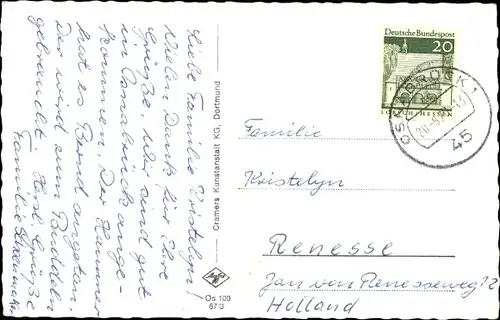 Liebe Familie Kristelyn!
Vielen Dank für Ihre
Grüße. Wir sind gut
in Osnabrück ange-
kommen. Der Hummer
hat es Bernd angetan.
Der wird zum Buddeln
gebraucht. Herzl. Grüße
Familie
Cramers Kunstanstalt KG, Dortmund
Os 100
67/3
Deutsche Bundespost
20
LORSCH/HESSEN
OSNABRÜCK 1
45
Familie
Kristelyn
Renesse
Jan van Renesseweg 12
Holland